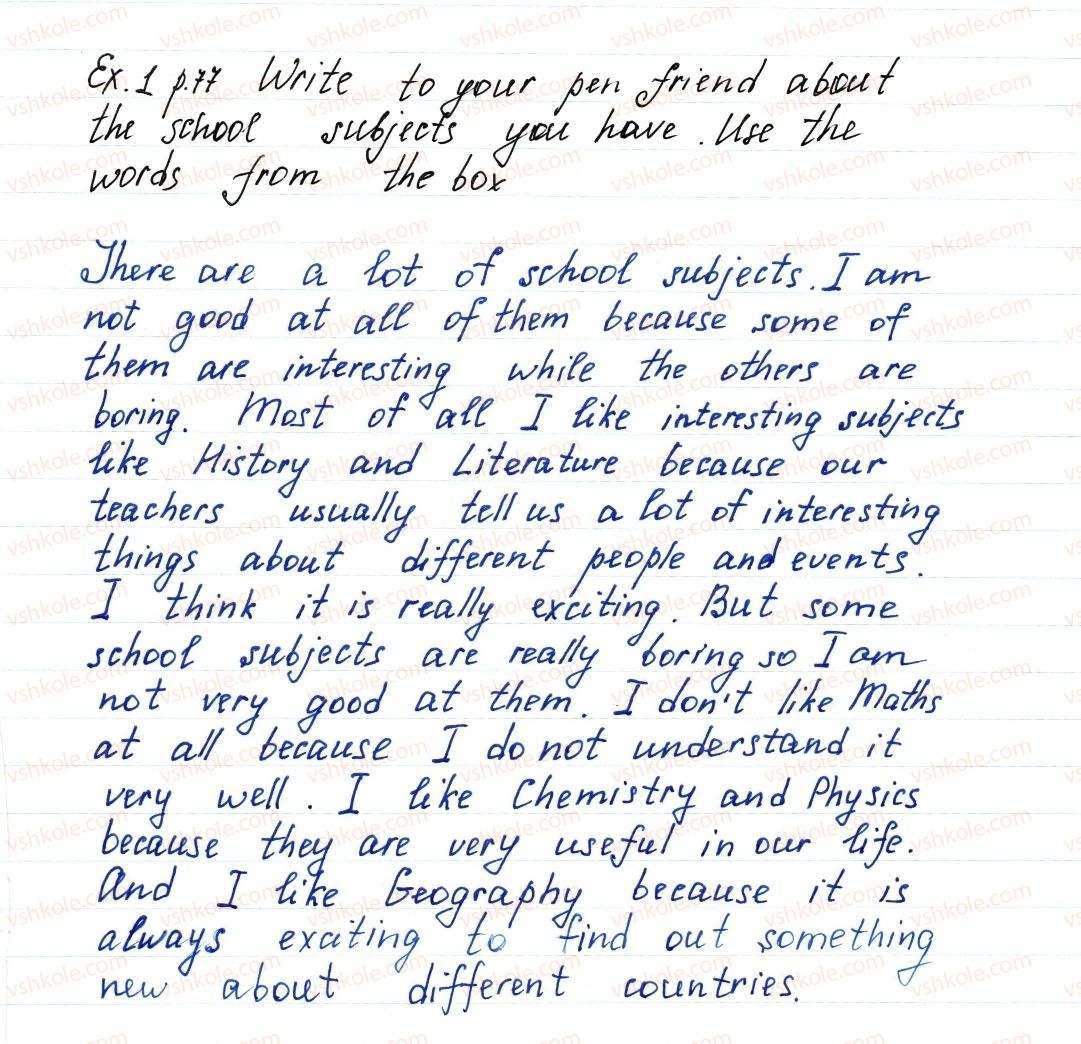 Ex. 1 p.77 Write to your pen friend about
the school subjects you have. Use the
words from the box
There are a lot of school subjects. I am
not good at all of them because some of
them are interesting while the others are
boring. Most of all I like interesting subjects
like History and Literature because our
teachers usually tell us a lot of interesting
things about different people and events.
I think it is really exciting. But some
school subjects are really boring so I am
not very good at them. I don't like Maths
at all because I do not understand it
very well. I like Chemistry and Physics
because they are very useful in our life.
And I like Geography because it is
always exciting to find out something
new about different countries.